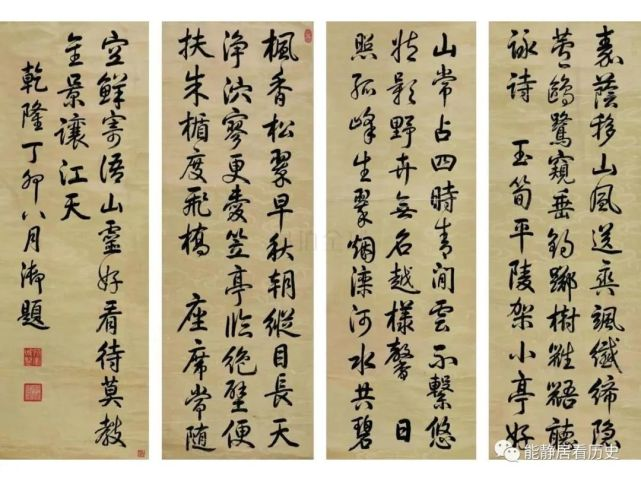 嘉蔭移山風送爽颯纖絺隐
鷗鷺窺垂釣擲樹鼪鼯聽
詠詩 玉筍平陵架小亭好
山常占四時青閒雲不繫悠
影野卉無名越樣馨 日
照孤峰生翠烟灤河水共碧
楓香松翠早秋朝縱目長天
淨泬寥更愛笠亭臨絶壁便
扶朱楯度飛橋 座席常隨
空鮮寄語山靈好看待莫教
全景讓江天
乾隆丁卯八月御題
能静居看历史